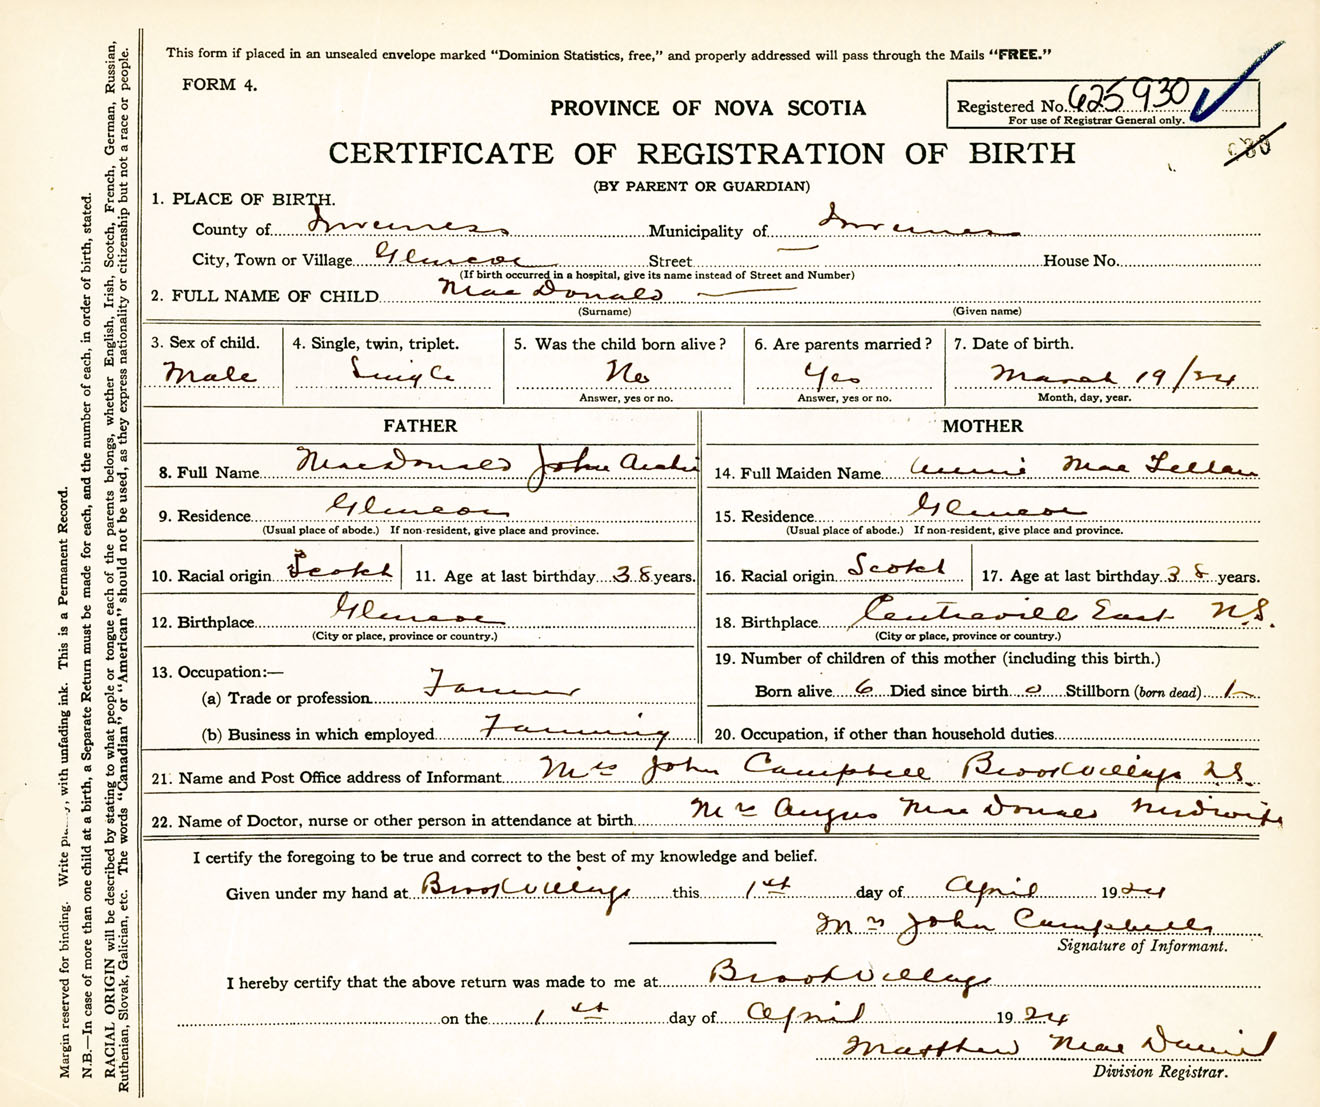 This form if placed in an unsealed envelope marked "Dominion Statistics, free," and properly addressed will pass through the Mails "FREE."
FORM 4.
PROVINCE OF NOVA SCOTIA
Registered No. 625930
For use of Registrar General only.
930
CERTIFICATE OF REGISTRATION OF BIRTH
(BY PARENT OR GUARDIAN)
1. PLACE OF BIRTH.
County of Inverness Municipality of Inverness
City, Town or Village Glencoe Street — House No.
(If birth occurred in a hospital, give its name instead of Street and Number)
2. FULL NAME OF CHILD MacDonald —
(Surname) (Given name)
3. Sex of child. 4. Single, twin, triplet. 5. Was the child born alive? 6. Are parents married? 7. Date of birth.
Male Single No Yes March 19/24
Answer, yes or no. Answer, yes or no. Month, day, year.
FATHER MOTHER
8. Full Name MacDonald John Archie 14. Full Maiden Name Annie MacLellan
9. Residence Glencoe 15. Residence Glencoe
(Usual place of abode.) If non-resident, give place and province. (Usual place of abode.) If non-resident, give place and province.
10. Racial origin Scotch 11. Age at last birthday 38 years. 16. Racial origin Scotch 17. Age at last birthday 38 years.
12. Birthplace Glencoe 18. Birthplace Centreville East N.S.
(City or place, province or country.) (City or place, province or country.)
13. Occupation:— 19. Number of children of this mother (including this birth.)
(a) Trade or profession Farmer Born alive 6 Died since birth 0 Stillborn (born dead) 1
(b) Business in which employed Farming 20. Occupation, if other than household duties
21. Name and Post Office address of Informant Mrs John Campbell Brook Village N.S.
22. Name of Doctor, nurse or other person in attendance at birth Mrs Angus MacDonald Midwife
I certify the foregoing to be true and correct to the best of my knowledge and belief.
Given under my hand at Brook Village this 1st day of April 1924
Mrs John Campbell
Signature of Informant.
I hereby certify that the above return was made to me at Brook Village
on the 1st day of April 1924
Matthew MacDaniel
Division Registrar.
Margin reserved for binding. Write plainly, with unfading ink. This is a Permanent Record.
N.B.—In case of more than one child at a birth, a Separate Return must be made for each, and the number of each, in order of birth, stated.
RACIAL ORIGIN will be described by stating to what people or tongue each of the parents belongs, whether English, Irish, Scotch, French, German, Russian,
Ruthenian, Slovak, Galician, etc. The words "Canadian" or "American" should not be used, as they express nationality or citizenship but not a race or people.